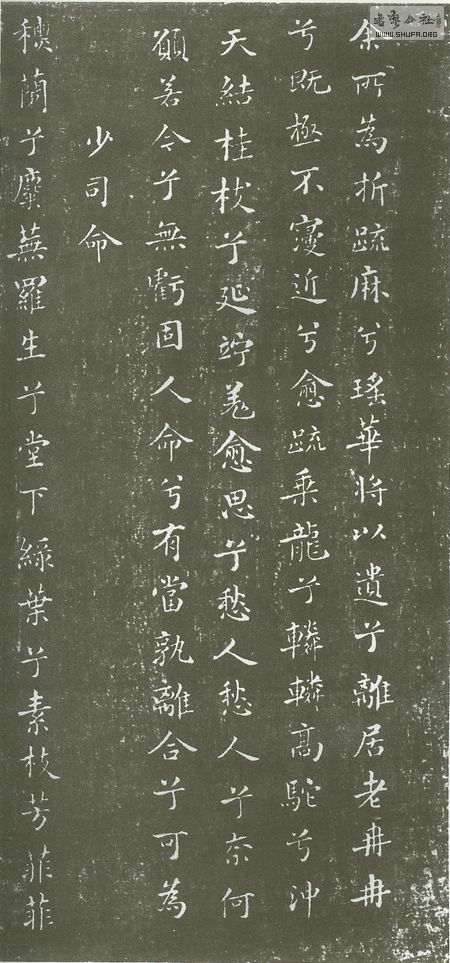 余所為折疏麻兮瑤華將以遺兮離居老冉冉
兮既極不寖近兮愈疏乘龍兮轔轔高駝兮沖
天結桂枝兮延竚羌愈思兮愁人愁人兮柰何
願若今兮無虧固人命兮有當孰離合兮可為
少司命
穖蘭兮麋蕪羅生兮堂下綠葉兮素枝芳菲菲
書藝公社
WWW.SHUFA.ORG